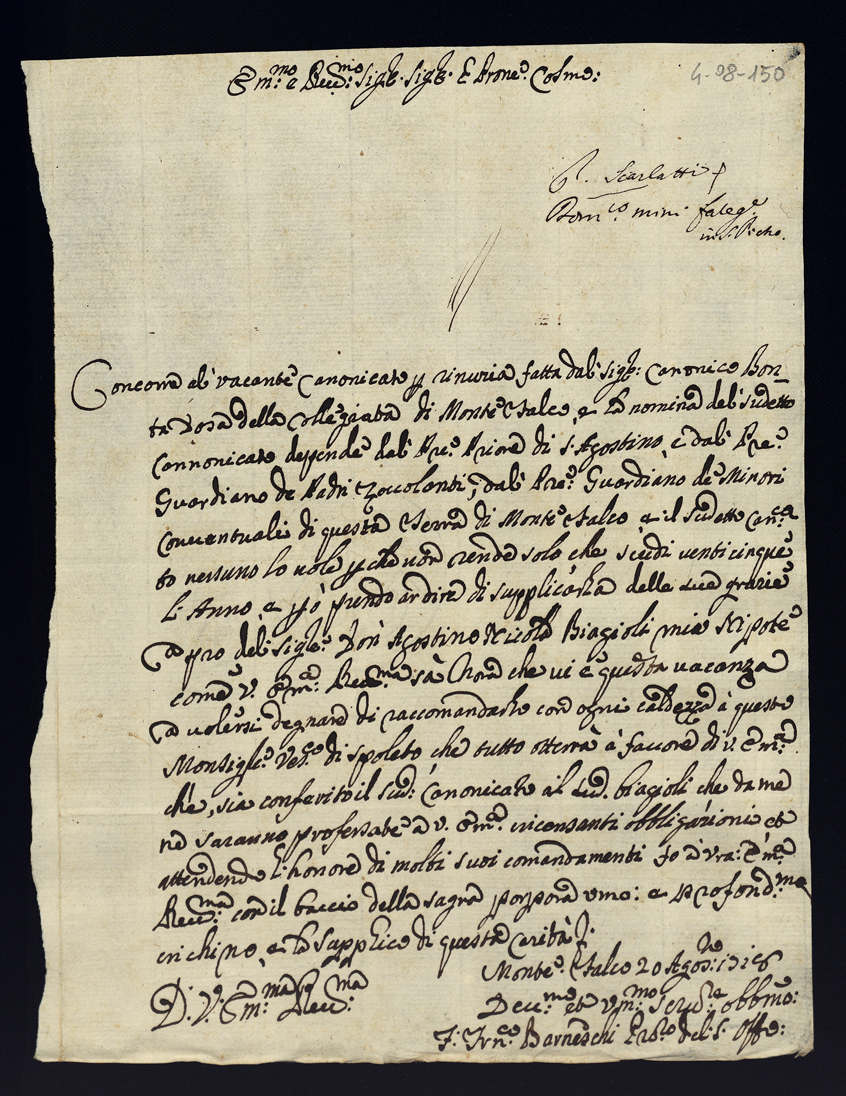 Em:mo e Rev:mo Sig.r Sig.r e Prone Colmo:
4-98-150
Scarlatti
Dom:co mini faleg.e
in S. P.etro.
Concorre al' vacante Canonicato p rinuzia fatta dal sigr: Canonico Bon-
ta della Collegiata di Monte Falco, e la nomina del' sudetto
Cannonicato depende dal' Pre. Priore di S. Agostino, e dal' Pre.
Guardiano de Padri Zoccolanti, e dal' Pre. Guardiano de Minori
Conventuali di questa Terra di Monte Falco e il sudetto Can:ca
to nessuno lo vole p che non rende solo che scudi venti cinque
l'Anno e p ò prendo ardire di supplicarla delle sue grazie
a pro del' Sigre. Don Agostino Nicola Biagioli mio Nipote
come V. Em:a Rev:ma sà hora che vi è questa vacanza
a volersi degnare di raccomandarlo con ogni caldezza à questo
Monsig.re Ves.co di Spoleto che tutto otterrà à favore di V. Em:a
che, sia conferito il sud: Canonicato al sud. biagioli che da me
ne saranno professate à V. Em:a incessanti obbligazioni et
attendendo l'honore di molti suoi comandamenti fo à Vra: Em:a
Rev:ma con il baccio della sagra porpora umo: e profond:ma
inchino, e la supplico di questa carità.
Monte Falco 20 Agos:to 1716
D. V. Em:ma Rev:ma
Dev:mo et um:mo ser:re obbmo:
F. Frn:co Barneschi del S. Offo: